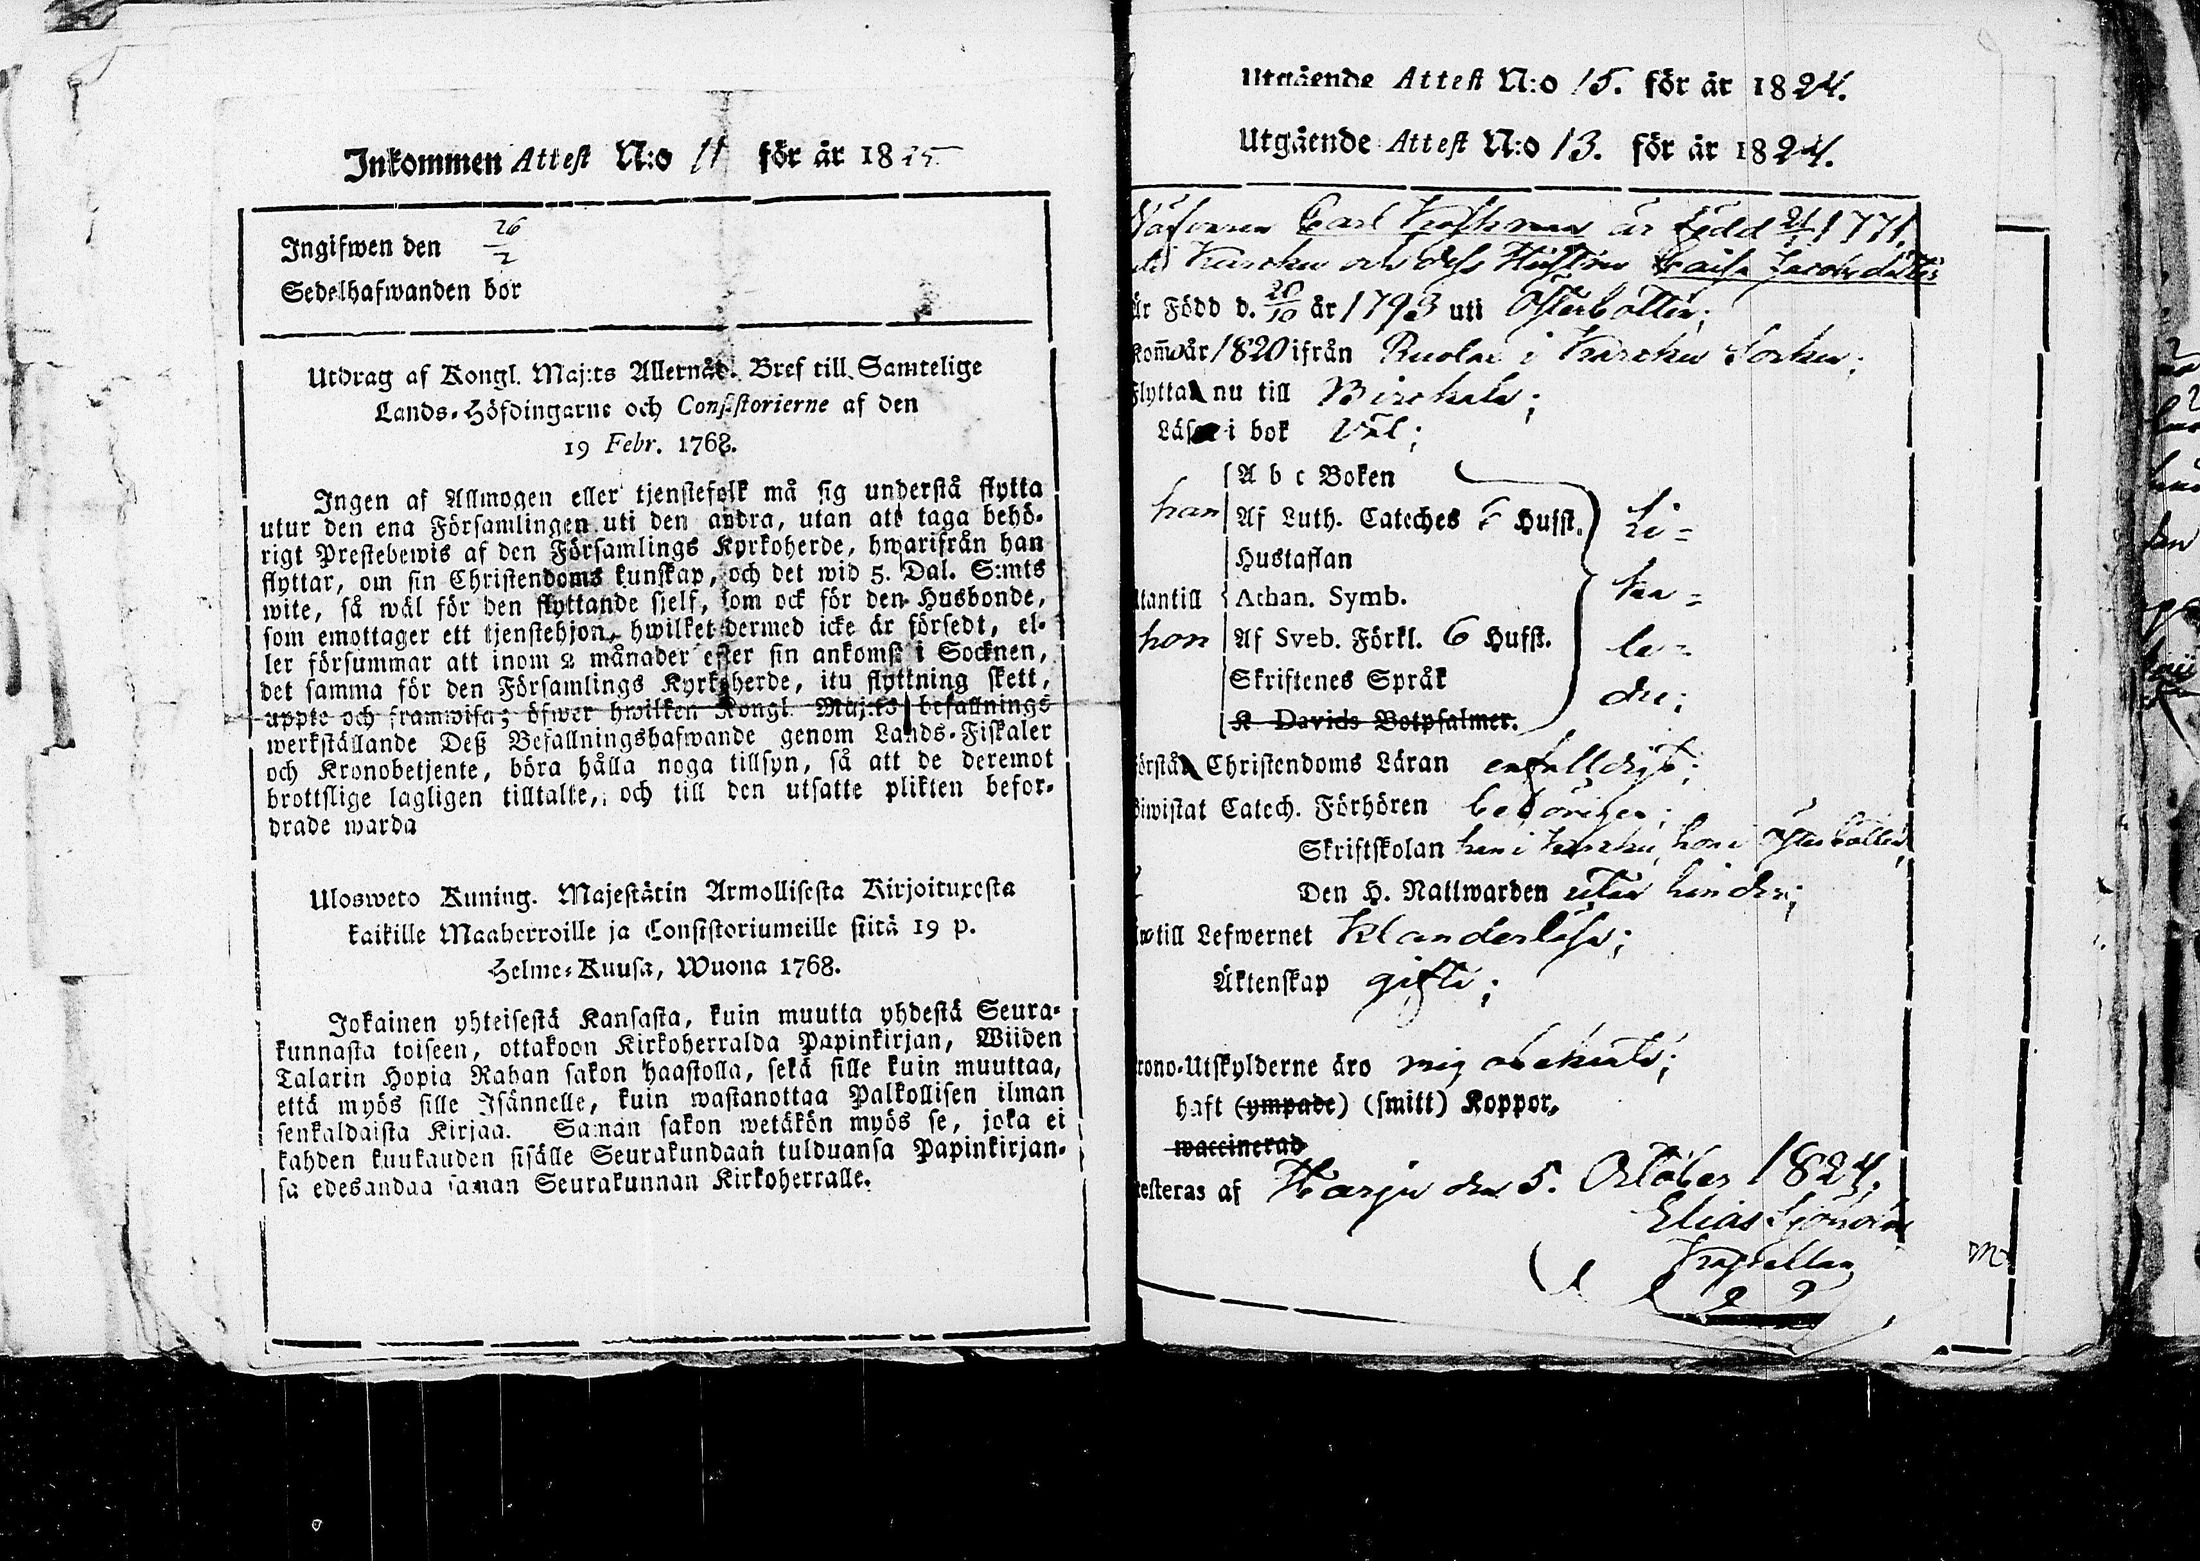 Inkommen Attest N:o 11 för år 1825
Ingifwen den 26/2
Sedelhafwanden bor
Utdrag af Kongl. Maj:ts Allernåd. Bref till Samtelige
Lands-Höfdingarne och Consistorierne af den
19 Febr. 1768.
Ingen af Allmogen eller tjenstefolk må sig understå flytta
utur den ena Församlingen uti den andra, utan att taga behö-
rigt Prestebewis af den Församlings Kyrkoherde, hwarifrån han
flyttar, om sin Christendoms kunskap, och det wid 5. Dal. S:mts
wite, så wäl för den flyttande sjelf, som ock för den Husbonde,
som emottager ett tjenstehjon, hwilket dermed icke är försedt, el-
ler försummar att inom 2 månader efter sin ankomst i Socknen,
det samma för den Församlings Kyrkoherde, itu flyttning skett,
uppte och framwisa; öfwer hwilken Kongl. Maj:ts befallnings
werkställande Deß Befallningshafwande genom Lands-Fiskaler
och Kronobetjente, böra hålla noga tillsyn, så att de deremot
brottslige lagligen tilltalte, och till den utsatte plikten befor-
drade warda
Ulosweto Kuning. Majestätin Armollisesta Kirjoituxesta
kaikille Maaherroille ja Consistoriumeille siitä 19 p.
Helme-Kuusa, Wuona 1768.
Jokainen yhteisestä Kansasta, kuin muutta yhdestä Seura-
kunnasta toiseen, ottakoon Kirkoherralda Papinkirjan, Wiiden
Talarin Hopia Rahan sakon haastolla, sekä sille kuin muuttaa,
että myös sille Isännelle, kuin wastanottaa Palkollisen ilman
senkaldaista Kirjaa. Saman sakon wetäkön myös se, joka ei
kahden kuukauden sisälle Seurakundaan tulduansa Papinkirjan-
sa edesandaa saman Seurakunnan Kirkoherralle.
Utgående Attest N:o 15. för år 1824.
Utgående Attest N:o 13. för år 1824.
Carl är född 1771.
Karcku och dess Hustru Caisa Jacobsdotter
är Född d. 20/10 år 1793 uti Österbotten;
kom̄ år 1820 ifrån i Karcku Socken;
Flytta nu till Birckala;
Läsa i bok Väl;
A b c Boken
han Af Luth. Cateches 6 Hufst. li-
Hustaflan
utantill Athan. Symb. ka-
hon Af Sveb. Förkl. 6 Hufst. le-
Skriftenes Språk
K Davids Botpsalmer. des;
Förstå Christendoms Läran enfalldigt;
Biwistat Catech. Förhören behörigen;
Skriftskolan han i Karcku, hon i Österbotten,
Den H. Nattwarden utan hinder;
till Lefwernet Klanderlösa;
Äktenskap gifta;
Krono-Utskylderne äro mig obekanta;
haft (ympade) (smitt) Koppor,
waccinerad
testeras af Harju den 5. October 1824.
Elias
Kapellan